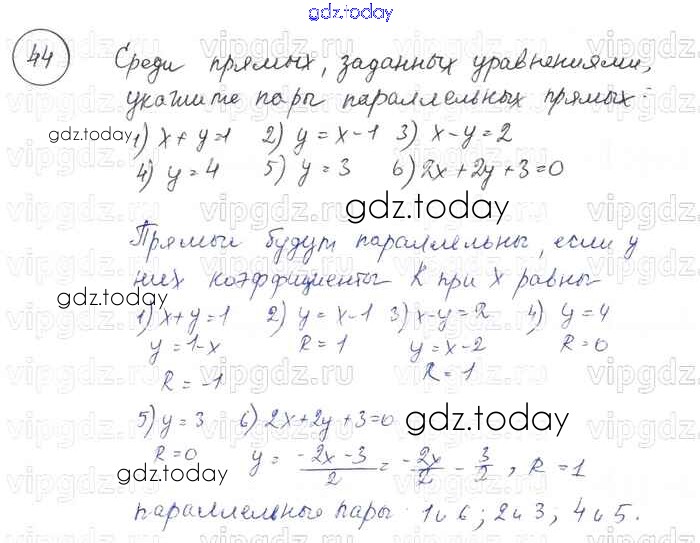 gdz.today
44 Среди прямых, заданных уравнениями,
укажите пары параллельных прямых:
gdz.today
1) x+y=1 2) y=x-1 3) x-y=2
4) y=4 5) y=3 6) 2x+2y+3=0
gdz.today
Прямые будут параллельны, если у
них коэффициенты K при X равны
gdz.today
1) x+y=1 2) y=x-1 3) x-y=2 4) y=4
y=1-x R=1 y=x-2 R=0
R=-1 R=1
gdz.today
5) y=3 6) 2x+2y+3=0
gdz.today
R=0 y= -2x-3/2 = -2x/2 - 3/2, R=1
параллельные пары 1 и 6; 2 и 3; 4 и 5.